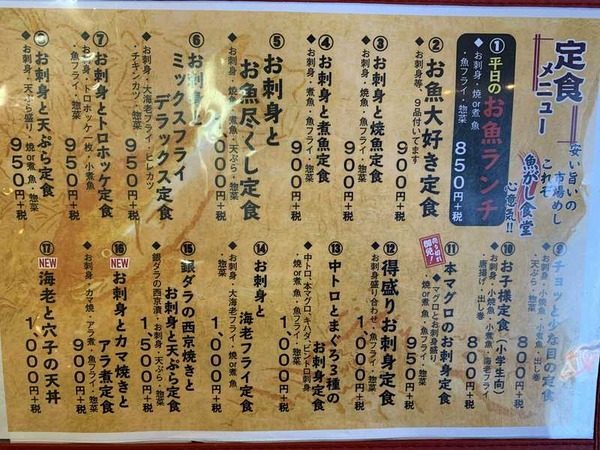 定食メニュー
安い旨いの
市場めし
これぞ
魚がし食堂
心意気!!
① 平日のお魚ランチ
◆お刺身・焼or煮魚
・魚フライ・惣菜
850円+税
② お魚大好き定食
◆お刺身等、9品付いてます
900円+税
③ お刺身と焼魚定食
◆お刺身・焼魚・魚フライ・惣菜
900円+税
④ お刺身と煮魚定食
◆お刺身・煮魚・魚フライ・惣菜
900円+税
⑤ お刺身と
お魚尽くし定食
◆お刺身・焼or煮魚・天ぷら・惣菜
000円+税
⑥ お刺身と
ミックスフライ
デラックス定食
◆お刺身・大海老フライ・ヒレカツ
・チキンカツ・惣菜
950円+税
⑦ お刺身とトロホッケ定食
◆お刺身・トロホッケ一枚・小煮魚
・魚フライ・惣菜
950円+税
お刺身と天ぷら定食
◆お刺身・天ぷら盛り・焼or煮魚・惣菜
950円+税
⑨ チョッと少な目の定食
◆お刺身・小焼魚・小煮魚・出し巻
・天ぷら・惣菜
800円+税
⑩ お子様定食(小学生向)
◆お刺身・小焼魚・小煮魚・海老フライ
・唐揚げ・出し巻
800円+税
⑪ 本マグロのお刺身定食
◆マグロとお刺身盛り
・焼or煮魚・魚フライ・惣菜
950円+税
⑫ 得盛りお刺身定食
◆お刺身盛り合わせ・魚フライ・惣菜
1,000円+税
⑬ 中トロとまぐろ3種の
お刺身定食
◆中トロ・本マグロ・キハダ・ビントロ刺身
・焼or煮魚・魚フライ・惣菜
1,000円+税
⑭ お刺身と
海老フライ定食
◆お刺身・大海老フライ・焼or煮魚
1,000円+税
⑮ 銀ダラの西京焼きと
お刺身と天ぷら定食
◆銀ダラの西京漬・お刺身・天ぷら・惣菜
1,500円+税
⑯ NEW お刺身とカマ焼きと
アラ煮定食
◆お刺身・カマ焼・アラ煮・魚フライ・惣菜
900円+税
⑰ NEW 海老と穴子の天丼
1,000円+税